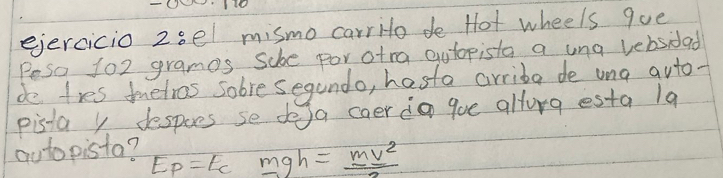 ejercicio 2:el mismo carrito de Hot wheels que
Pesa 102 gramos sube por otra autopista a una vebsidad
de tres metros sobre segundo, hasta arriba de una auto-
pista y despues se deja caer ¿a que altura esta la
autopista?
Ep=Ec mgh = mv²